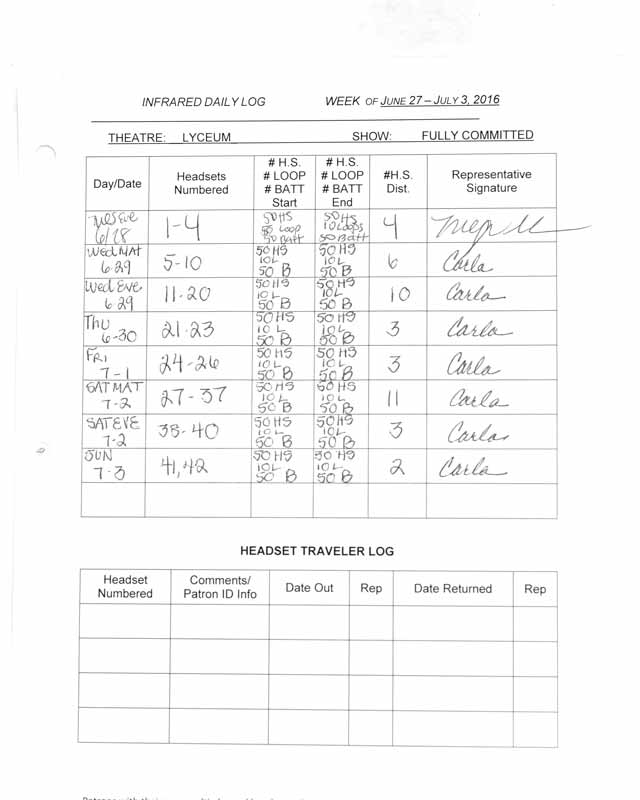 INFRARED DAILY LOG WEEK OF JUNE 27 – JULY 3, 2016
THEATRE: LYCEUM SHOW: FULLY COMMITTED
Day/Date Headsets Numbered # H.S. # LOOP # BATT Start # H.S. # LOOP # BATT End #H.S. Dist. Representative Signature
Eve 6/28 1-4 50HS Loop 50 Batt 50HS 10 Loops 50 Batt 4
WED MAT 6-29 5-10 50 HS 10 L 50 B 50 HS 10 L 50 B 6 Carla
Wed Eve 6-29 11-20 50 HS 10 L 50 B 50 HS 10 L 50 B 10 Carla
Thu 6-30 21-23 50 HS 10 L 50 B 50 HS 10 L 50 B 3 Carla
FRI 7-1 24-26 50 HS 10 L 50 B 50 HS 10 L 50 B 3 Carla
SAT MAT 7-2 27-37 50 HS 10 L 50 B 50 HS 10 L 50 B 11 Carla
SAT EVE 7-2 38-40 50 HS 10 L 50 B 50 HS 10 L 50 B 3 Carla
SUN 7-3 41,42 50 HS 10 L 50 B 50 HS 10 L 50 B 2 Carla
HEADSET TRAVELER LOG
Headset Numbered Comments/ Patron ID Info Date Out Rep Date Returned Rep